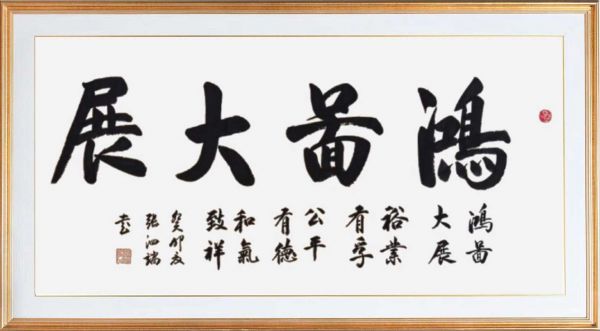 鴻啚大展
鴻啚
大展
裕業
有孚
公平
有德
和氣
致祥
癸卯夏
書